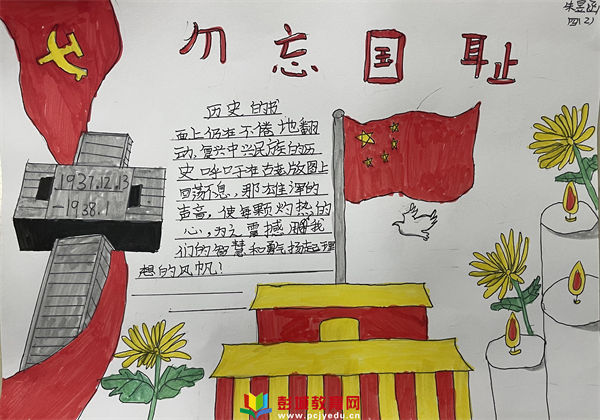 勿忘国耻
朱昱涵
四(2)
历史的书
面上仍在不倦地翻
动,复兴中兴民族的历
史呼吁在古老版图上
回荡不息,那雄浑的
声音,使每颗灼热的
心,为之震撼用我
们的智慧和
扬起理
想的风帆!
1937.12.13
-1938.1
彭城教育网
www.pcjyedu.cn